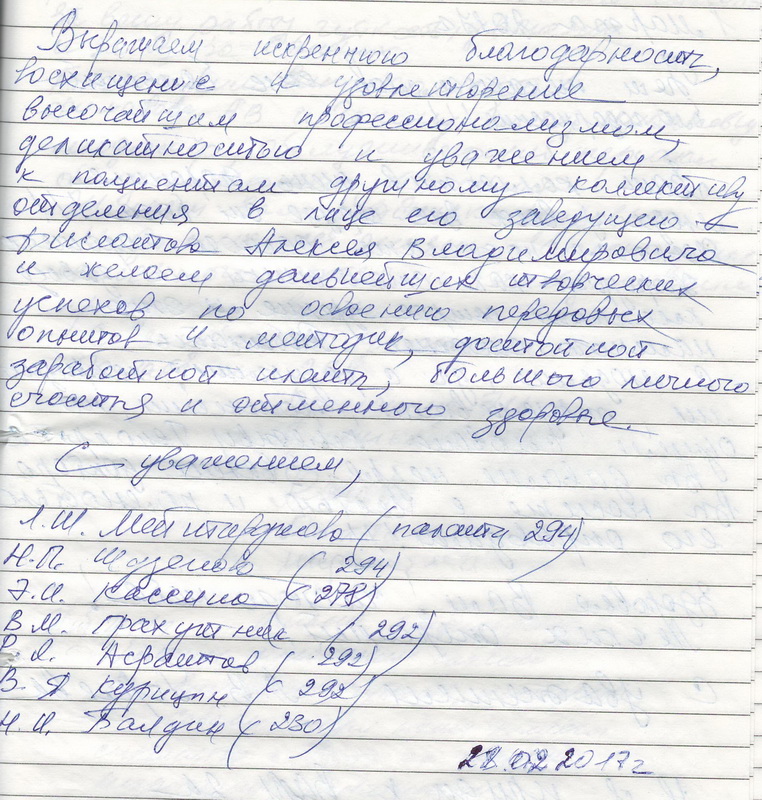 Выражаем искреннюю благодарность,
восхищение и удовлетворение
высочайшим профессионализмом,
деликатностью и уважением
к пациентам дружному коллективу
отделения в лице его заведущего
Алексея Владимировича
и желаем дальнейших творческих
успехов по освоению передовых
опытов и методик, достойной
заработной платы, большого личного
счастья и отменного здоровье.
С уважением,
Л.Ш. (палата 294)
Н.П. (294)
Э.И. Кассина (278)
В.М. (292)
Асфаитов (292)
В.Я Курицын (292)
Н.И. Балдин (230)
02 2017г